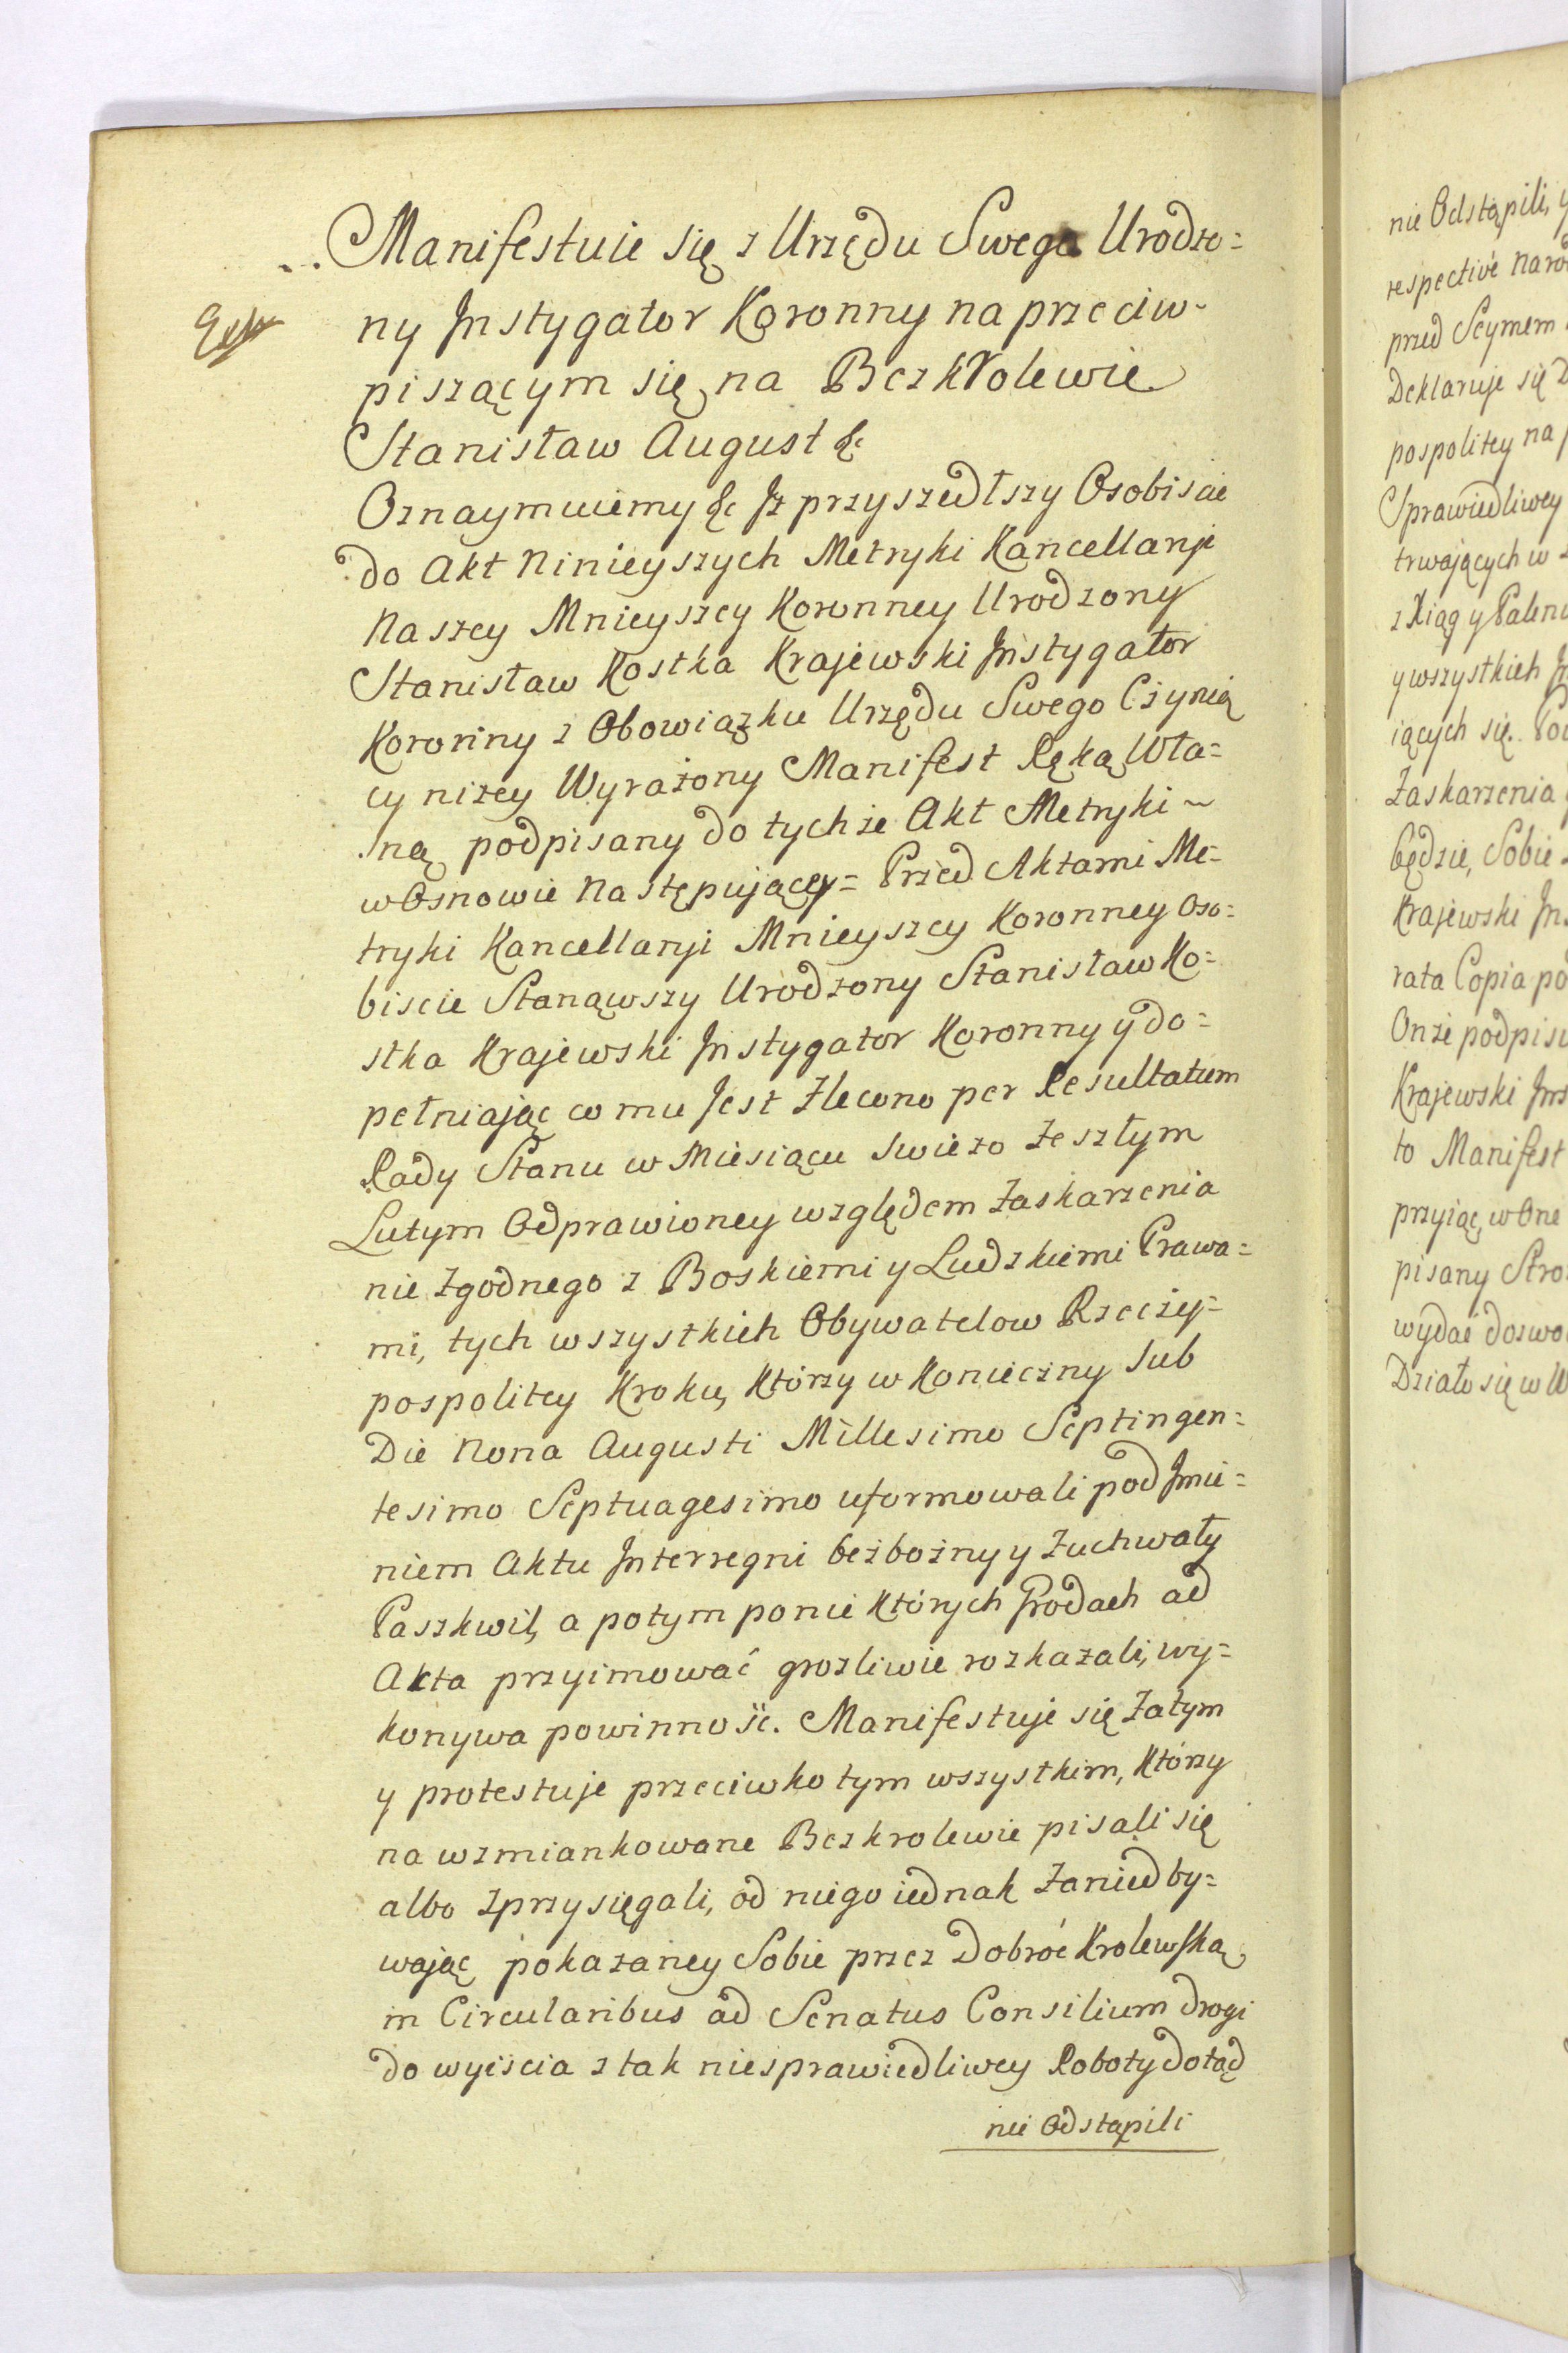 Manifestuie się z Urzędu Swego Urodzo=
ny Instygator Koronny na przeciw-
piszącym się na Bezkrolewie
Stanisław August &c
Oznaymuiemy &c Iz przyszedłszy Osobiscie
do Akt Ninieyszych Metryki Kancellaryi
Naszey Mnieyszey Koronney Urodzony
Stanisław Kostka Krajewski Instygator
Koronny z Obowiązku Urzędu Swego Czynią
cy niżey Wyrażony Manifest Ręką Wła=
sną podpisany do tychże Akt Metryki ~
w Osnowie Następującey= Przed Aktami Me=
tryki Kancellaryi Mnieyszey Koronney Oso=
biscie Stanąwszy Urodzony Stanisław Ko=
stka Krajewski Instygator Koronny y do=
pełniając co mu Jest Zlecono per Resultatum
Rady Stanu w Miesiącu Swiezo Zeszłym
Lutym Odprawioney względem Zaskarzenia
nie Zgodnego z Boskiemi y Ludzkiemi Prawa=
mi, tych wszystkich Obywatelow Rzeczy=
pospolitey Kroku, Którzy w Konieczny Sub
Die Nona Augusti Millesimo Septingen=
tesimo Septuagesimo uformowali pod Imie=
niem Aktu Interregni bezbożny y Zuchwały
Paszkwil, a potym ponie Których Grodach ad
Akta przyimować grozliwie rozkazali, wy=
konywa powinność. Manifestuje się Zatym
y protestuje przeciwko tym wszystkim, Którzy
na wzmiankowane Bezkrolewie pisali się
albo zprzysięgali, od niego iednak Zaniedby=
wając pokazaney Sobie przez Dobroć Krolewską
in Circularibus ad Senatus Consilium drogi
do wyiscia z tak niesprawiedliwey Roboty dotąd
nie Odstąpili
nie Odstąpili, y
respective Naro
przed Seymem
Deklaruje się
pospolitey na
Sprawiedliwey
trwających w
z Xiąg y Palen
y wszystkich
iących się.
Zaskarzenia
będzie, Sobie
Krajewski Ins
rata Copia po
Onże podpis
Krajewski Ins
to Manifest
przyiąć, w One
pisany Stro
wydać dozwo
Działo się w W